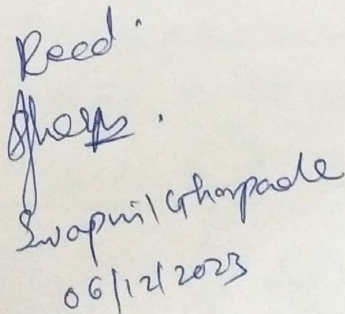 Recd.
Swapnil Ghorpade
06/12/2023